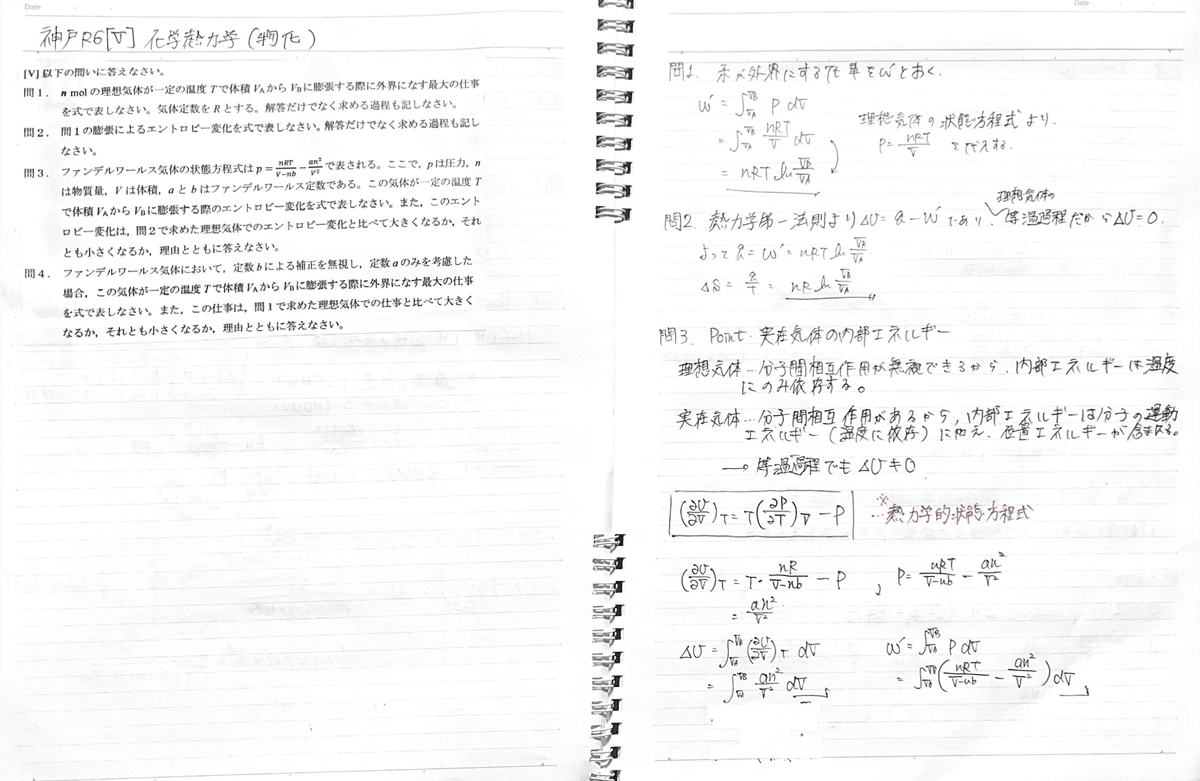 Date
神戸R6[Ⅴ] 化学熱力学(物化)
[V]以下の問いに答えなさい。
問1. n molの理想気体が一定の温度Tで体積V_AからV_Bに膨張する際に外界になす最大の仕事
を式で表しなさい。気体定数をRとする。解答だけでなく求める過程も記しなさい。
問2. 問1の膨張によるエントロピー変化を式で表しなさい。解答だけでなく求める過程も記し
なさい。
問3. ファンデルワールス気体の状態方程式はp = nRT/(V−nb) − an²/V² で表される。ここで,pは圧力,n
は物質量,Vは体積,aとbはファンデルワールス定数である。この気体が一定の温度T
で体積V_AからV_Bに膨張する際のエントロピー変化を式で表しなさい。また,このエント
ロピー変化は,問2で求めた理想気体でのエントロピー変化と比べて大きくなるか,それ
とも小さくなるか,理由とともに答えなさい。
問4. ファンデルワールス気体において,定数bによる補正を無視し,定数aのみを考慮した
場合,この気体が一定の温度Tで体積V_AからV_Bに膨張する際に外界になす最大の仕事
を式で表しなさい。また,この仕事は,問1で求めた理想気体での仕事と比べて大きく
なるか,それとも小さくなるか,理由とともに答えなさい。
Date
問1. 系が外界にする仕事をw'とおく。
w' = ∫_{V_A}^{V_B} P dV
= ∫_{V_A}^{V_B} nRT/V dV
= nRT ln V_B/V_A
理想気体の状態方程式より,
P = nRT/V を代入する。
問2. 熱力学第一法則よりΔU = q − w' であり,
理想気体の
等温過程だからΔU = 0.
よって q = w' = nRT ln V_B/V_A
ΔS = q/T = nR ln V_B/V_A
問3. Point・実在気体の内部エネルギー
理想気体…分子間相互作用が無視できるから,内部エネルギーは温度
にのみ依存する。
実在気体…分子間相互作用があるから,内部エネルギーは分子の運動
エネルギー(温度に依存)に加え,位置エネルギーが含まれる。
→ 等温過程でも ΔU ≠ 0
(∂U/∂V)_T = T(∂P/∂T)_V − P
…※熱力学的状態方程式
(∂U/∂V)_T = T・nR/(V−nb) − P
P = nRT/(V−nb) − an²/V²
= an²/V²
ΔU = ∫_{V_A}^{V_B} (∂U/∂V)_T dV
= ∫_{V_A}^{V_B} an²/V² dV
w' = ∫_{V_A}^{V_B} P dV
= ∫_{V_A}^{V_B} (nRT/(V−nb) − an²/V²) dV